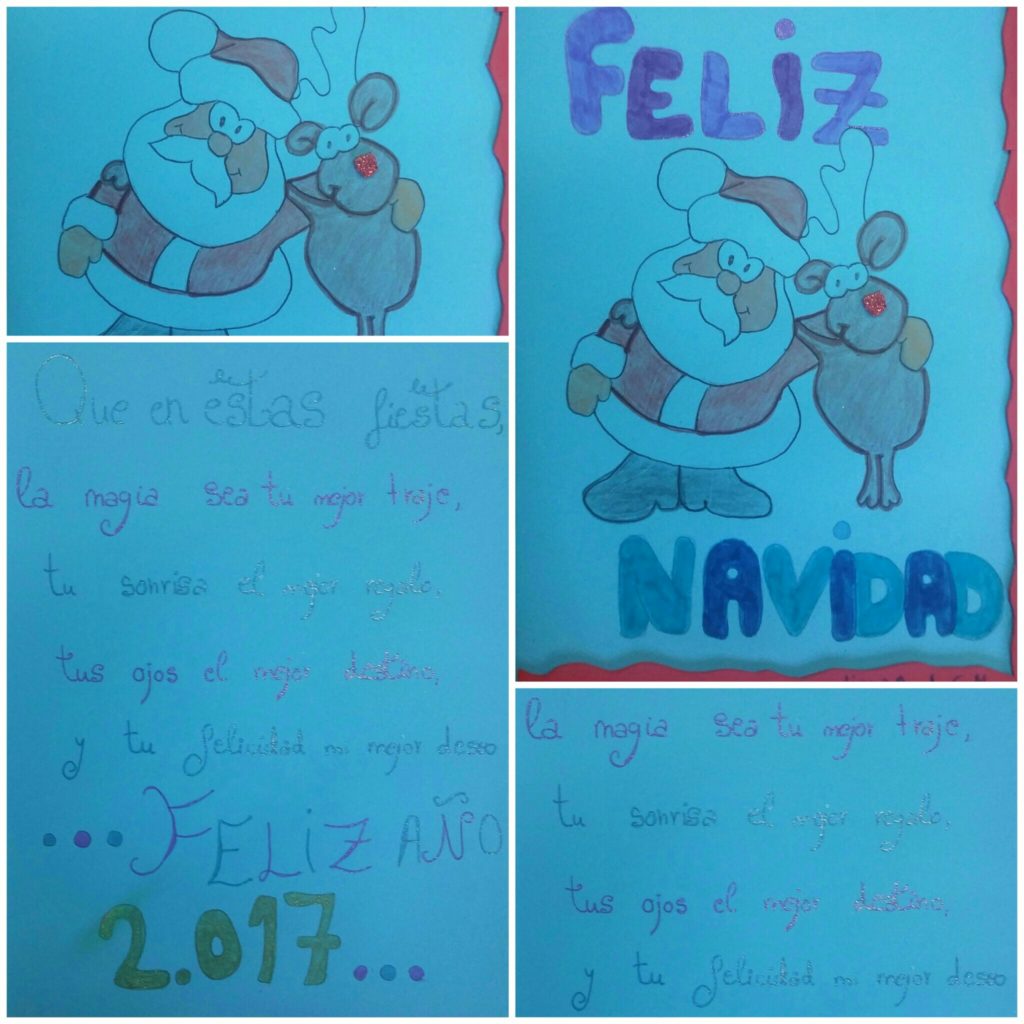 FELIZ
NAVIDAD
Que en estas fiestas,
la magia sea tu mejor traje,
tu sonrisa el mejor regalo,
tus ojos el mejor destino,
y tu felicidad mi mejor deseo
...FELIZ AÑO
2.017...
la magia sea tu mejor traje,
tu sonrisa el mejor regalo,
tus ojos el mejor destino,
y tu felicidad mi mejor deseo